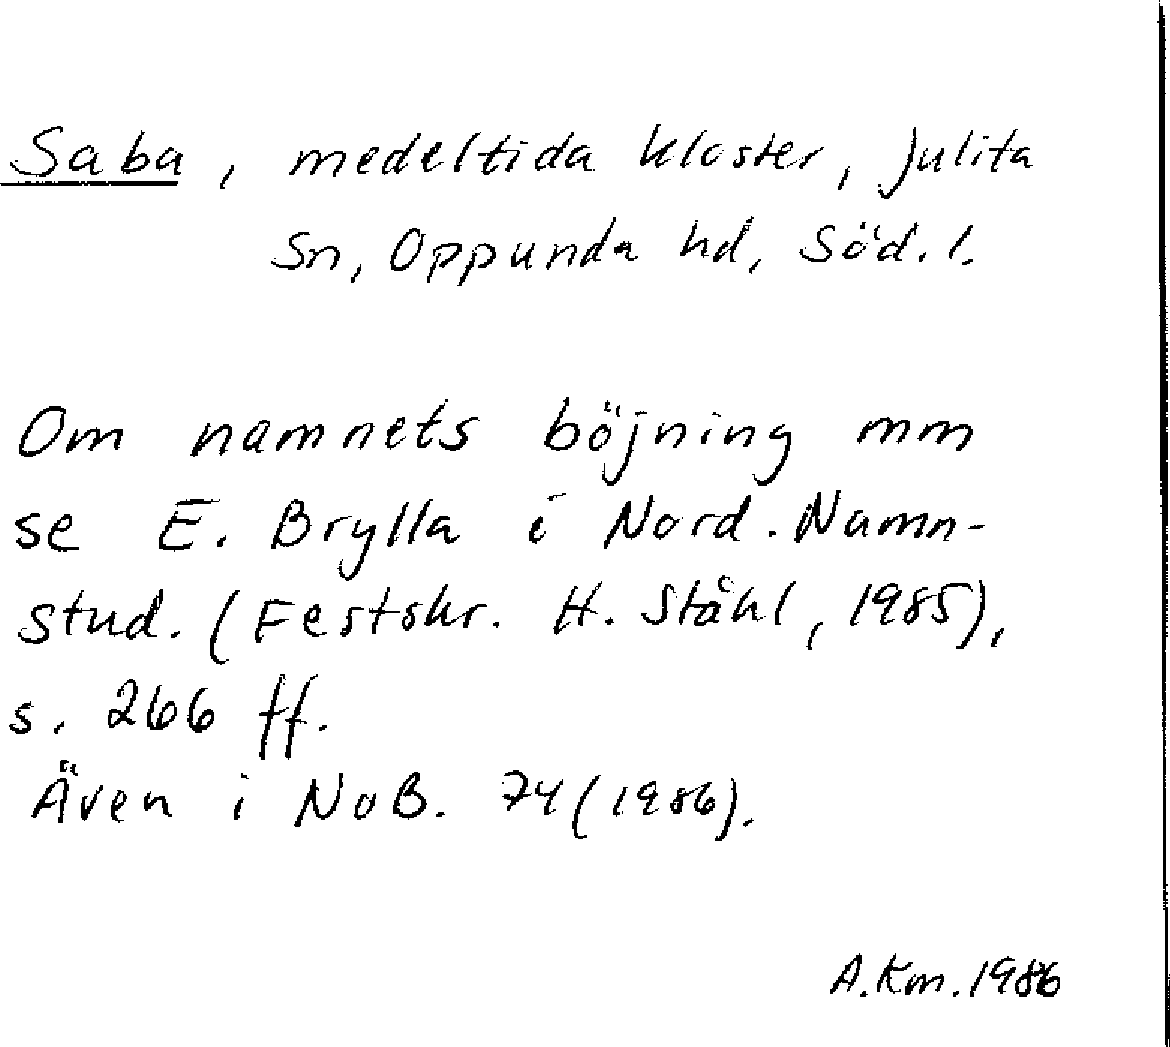 Saba, medeltida kloster, Julita
Sn, Oppunda hd, Söd. l.
Om namnets böjning mm
se E. Brylla i Nord. Namn-
stud. (Festskr. H. Ståhl, 1985),
s. 266 ff.
Även i NoB. 74 (1986).
A. Km. 1986